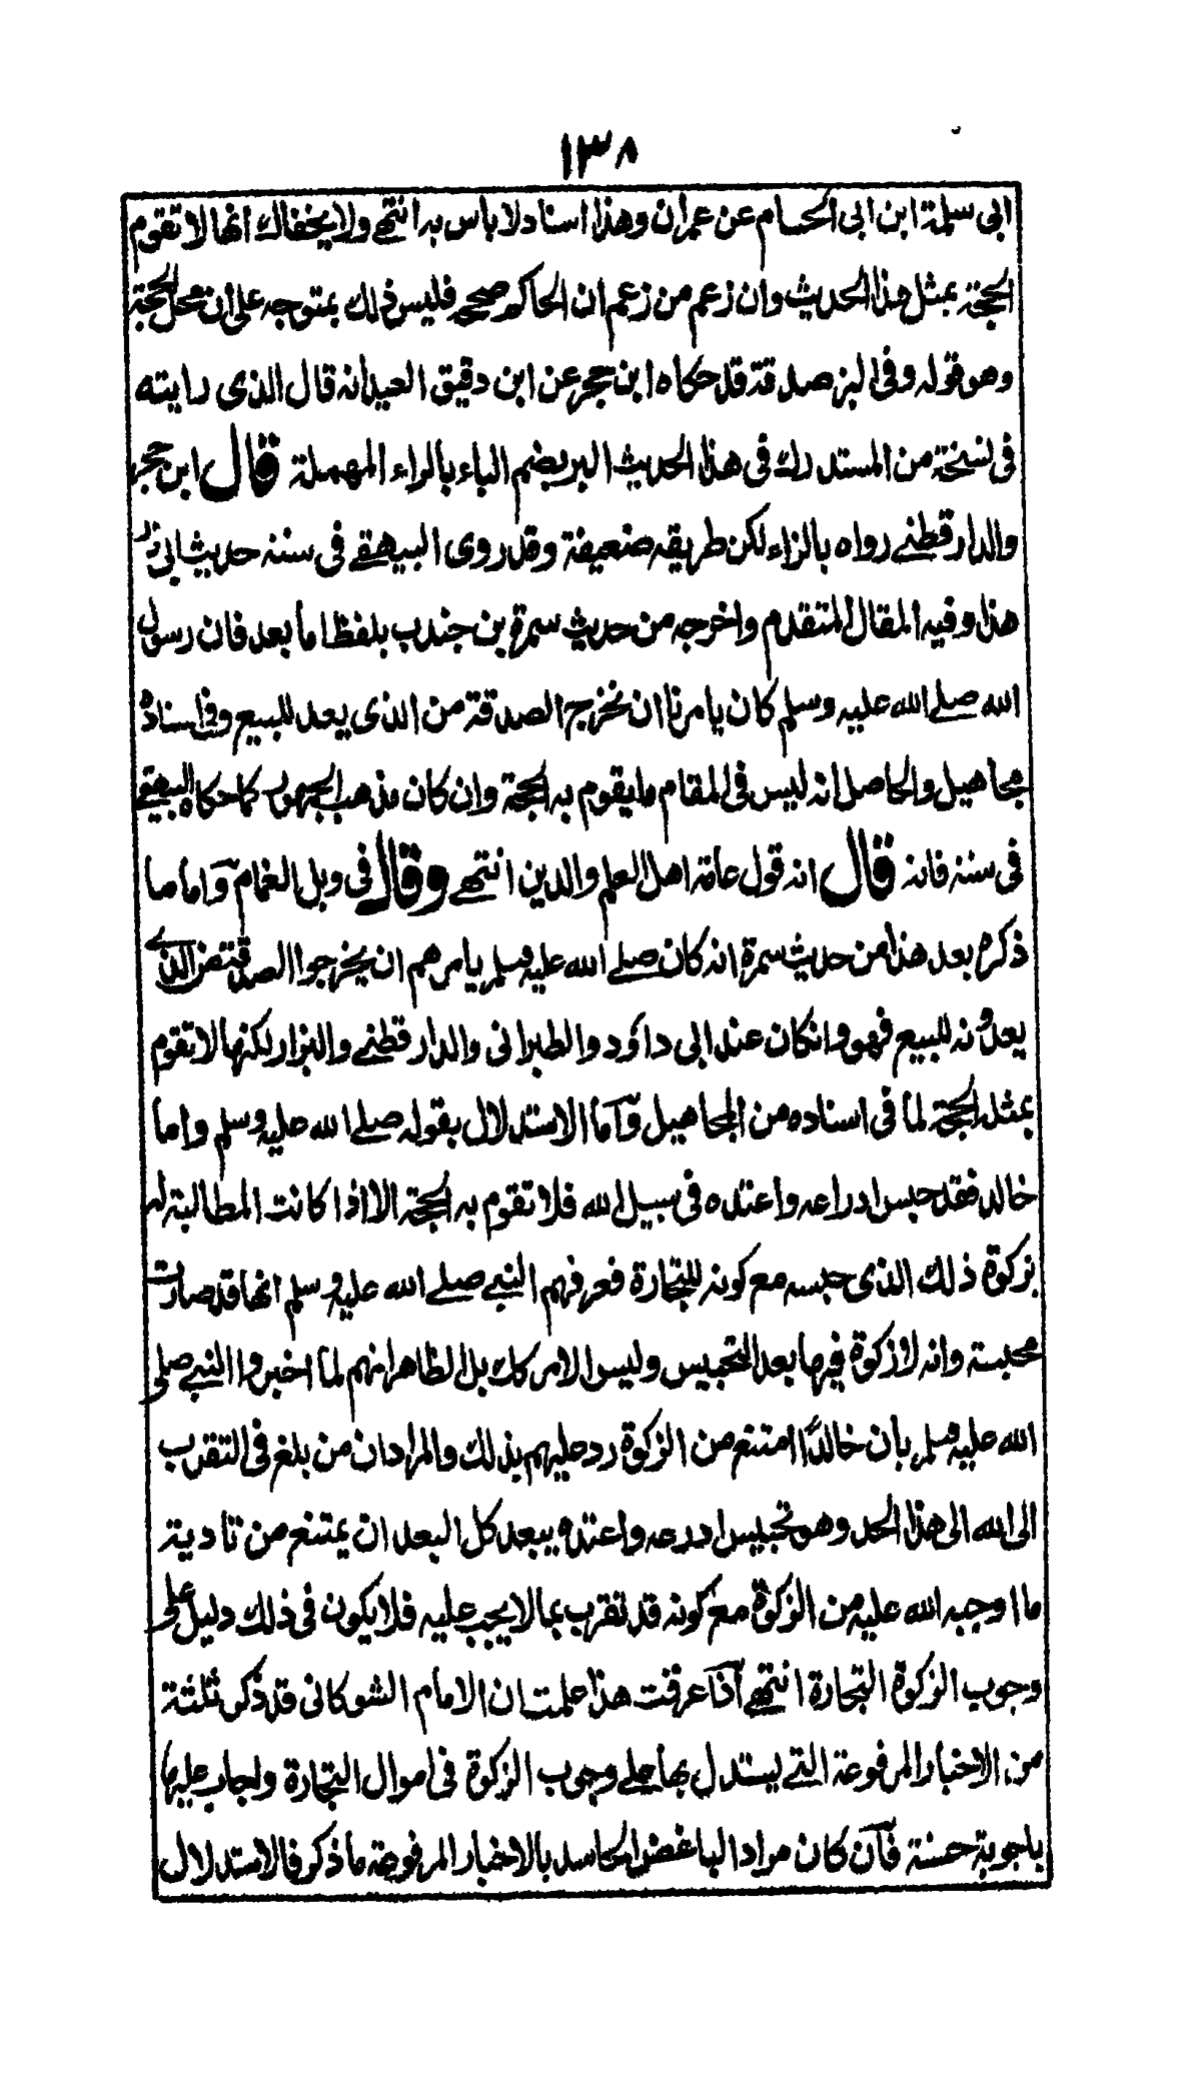 ١٣٨
ابى سلمة ابن ابى الحسام عن عمران وهذا اسناد لا باس به انتهى ولا يخفاك انها لا تقوم
الحجة بمثل هذا الحديث وان زعم من زعم ان الحاكم صححه فليس ذلك بمتوجه على أن محل الحجة
وهو قوله وفى البز صدقة قد حكاه ابن حجر عن ابن دقيق العيد انه قال الذى رايته
فى نسخة من المستدرك فى هذا الحديث البر بضم الباء بالراء المهملة قال ابن حجر
والدارقطنے رواه بالزاء لكن طريقه ضعيفة وقد روى البيهقے فى سننه حديث ابى ذر
هذا وفيه المقال المتقدم واخرجه من حديث سمرة بن جندب بلفظ اما بعد فان رسول
الله صلے الله عليه وسلم كان يامرنا ان نخرج الصدقة من الذى يعد للبيع وفى اسناده
مجاهيل والحاصل انه ليس فى المقام ما يقوم به الحجة وان كان مذهب الجمهور كما حكاه البيهقے
فى سننه فانه قال انه قول عامة اهل العلم والدين انتهے وقال فى وبل الغمام وٓاما ما
ذكره بعد هذا من حديث سمرة انه كان صلے الله عليه وسلم يامرهم ان يخرجوا الصدقة من الذے
يعدونه للبيع فهو وانكان عند ابى داؤد والطبرانى والدارقطنے والبزار لكنها لا تقوم
بمثله الحجة لما فى اسناده من المجاهيل وٓاما الاستدلال بقوله صلے الله عليه وسلم واما
خالد فقد حبس ادراعه واعتده فى سبيل الله فلا تقوم به الحجة الا اذا كانت المطالبة له
بزكوة ذلك الذى حبسه مع كونه للتجارة فعرفهم النبے صلے الله عليه وسلم انها قد صارت
محبسة وانه لا زكوة فيها بعد التحبيس وليس الامر كك بل الظاهر انهم لما اخبروا النبے صلى
الله عليه وسلم بأن خالدًا امتنع من الزكوة رد عليهم بذلك والمراد ان من بلغ فى التقرب
الى الله الى هذا الحد وهو تحبيس ادرعه واعتده يبعد كل البعد ان يمتنع من تادية
ما اوجبه الله عليه من الزكوة مع كونه قد تقرب بما لا يجب عليه فلا يكون فى ذلك دليل على
وجوب الزكوة التجارة انتهے آذا عرفت هذا علمت ان الامام الشوكانى قد ذكر ثلثة
من الاخبار المرفوعة التے يستدل بها علے وجوب الزكوة فى اموال التجارة واجاب عليها
باجوبة حسنة فآن كان مراد الباغض الحاسد بالاخبار المرفوعة ما ذكر فالاستدلال